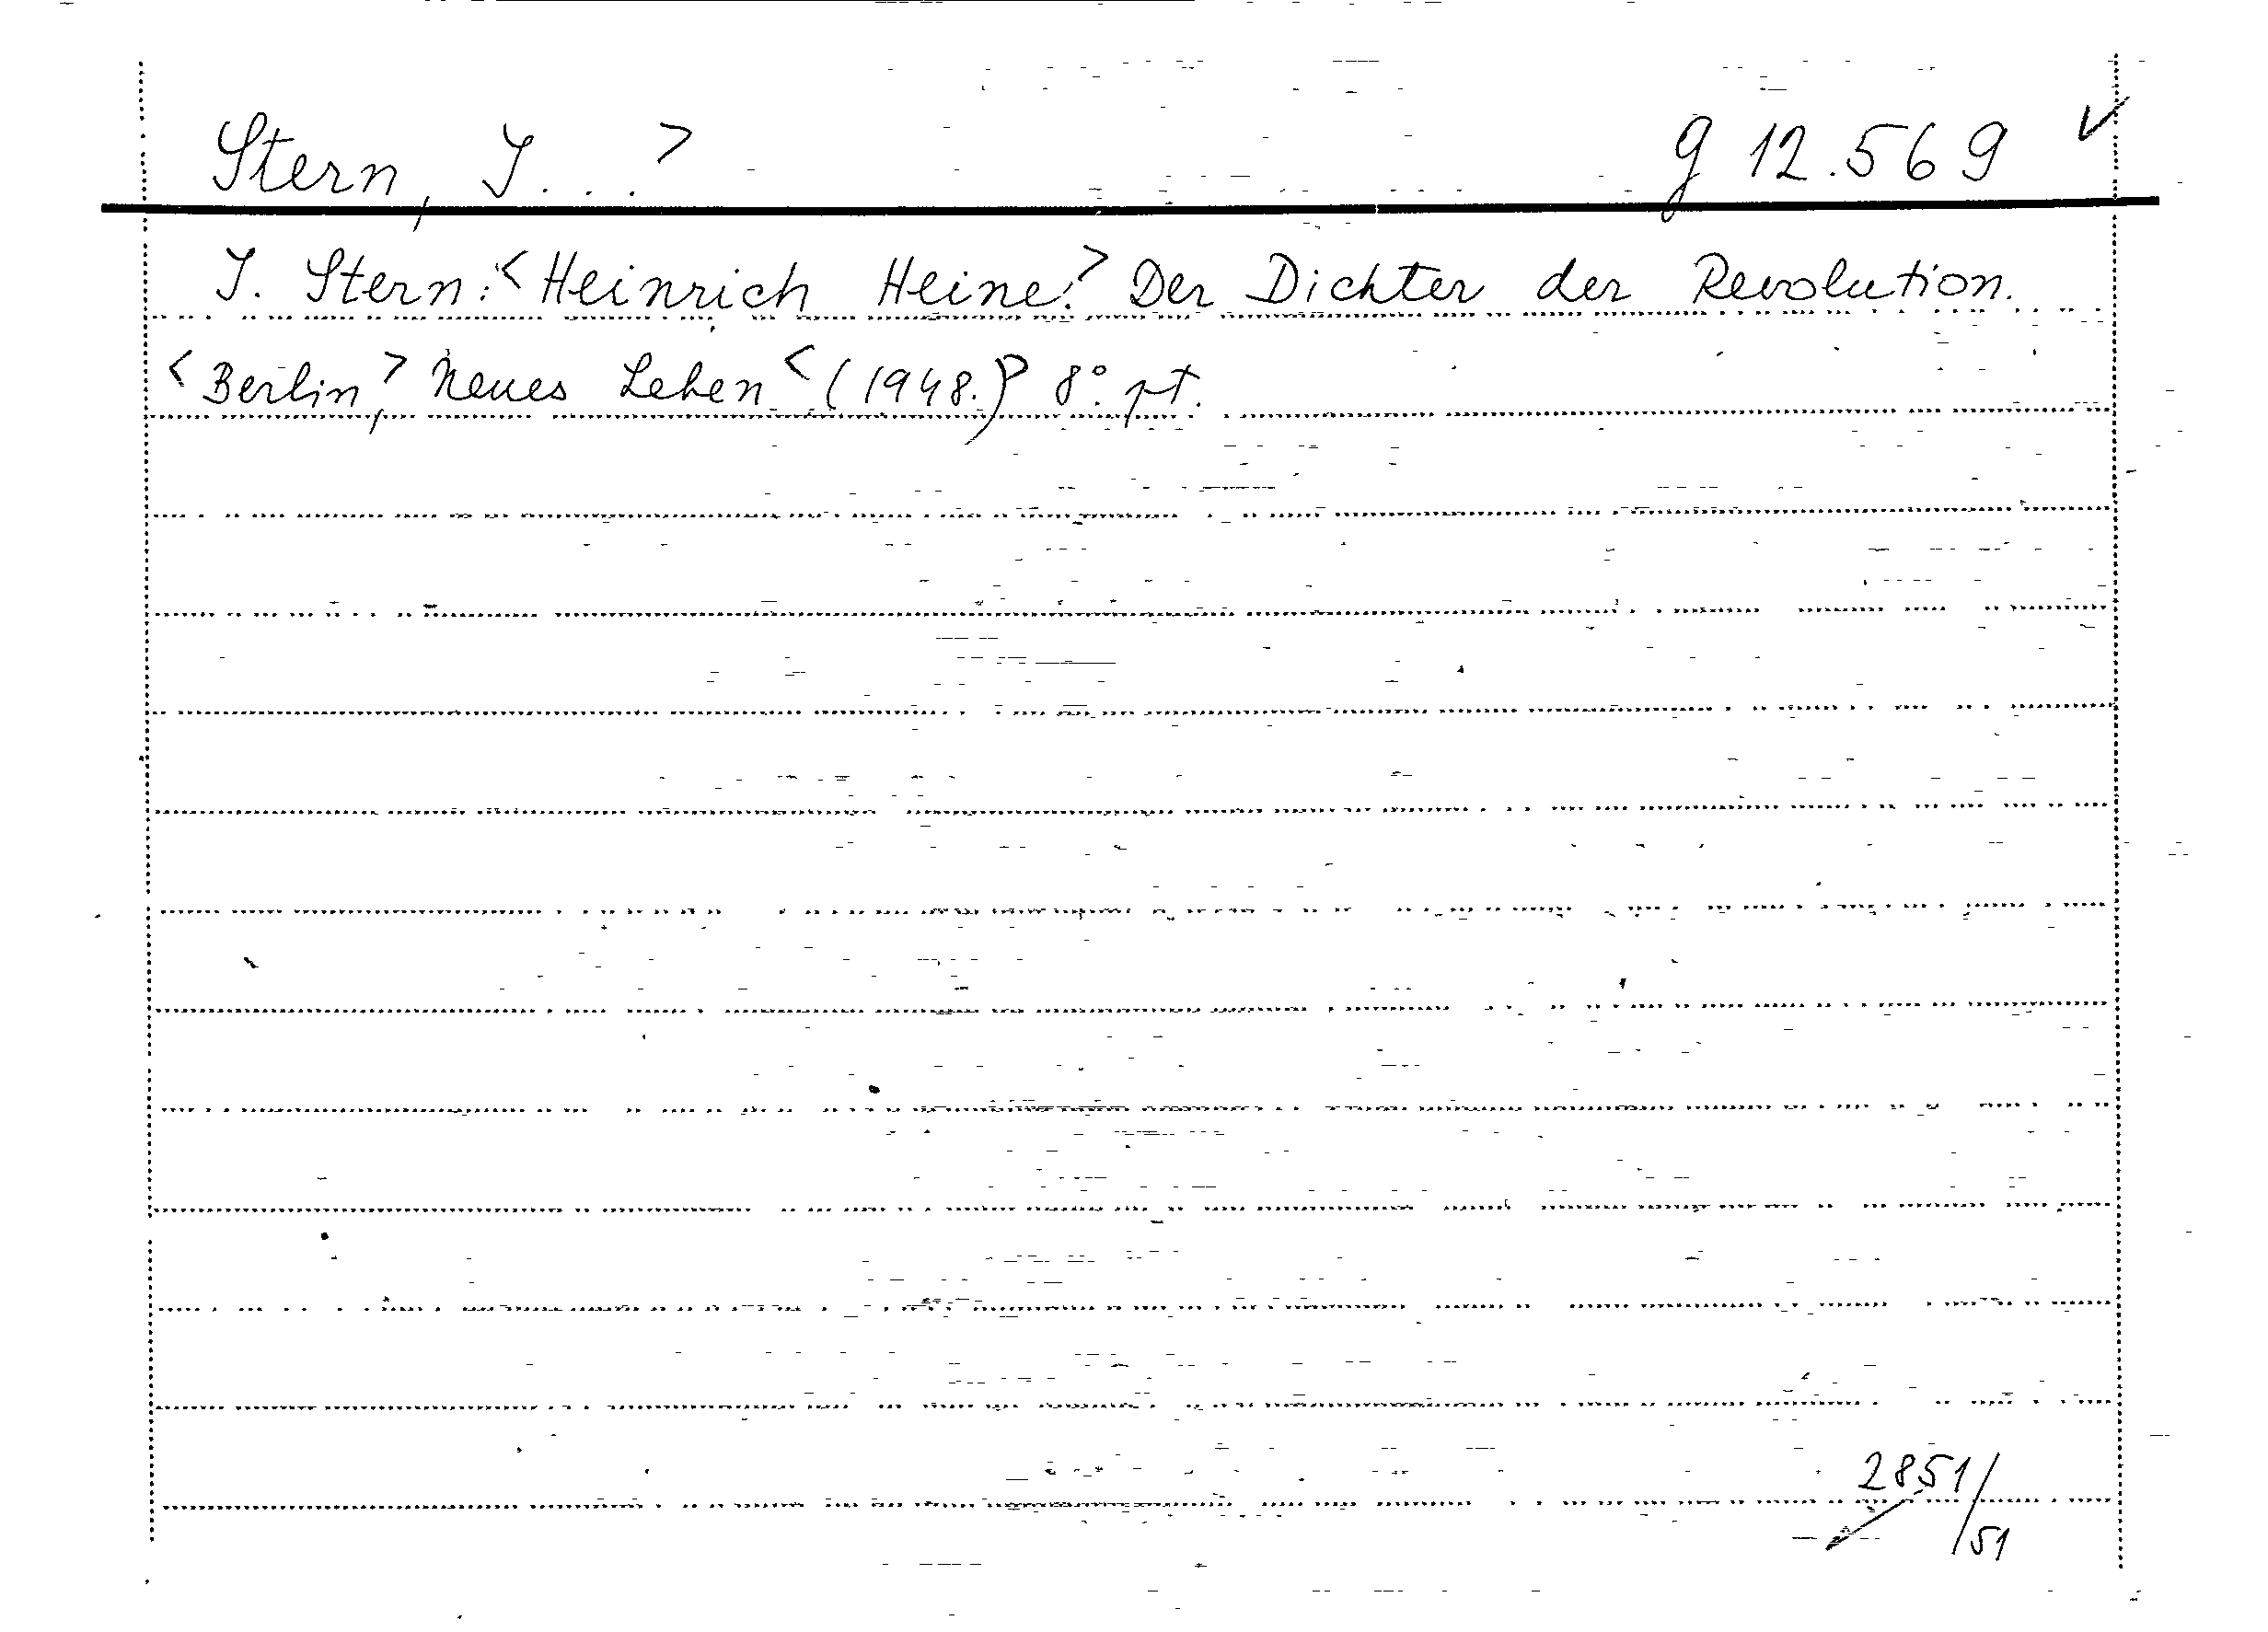 Stern, J. . . > g 12.569 ✓
J. Stern: <Heinrich Heine.> Der Dichter der Revolution.
<Berlin,> Neues Leben <(1948.)> 8°. pt.
2851/51